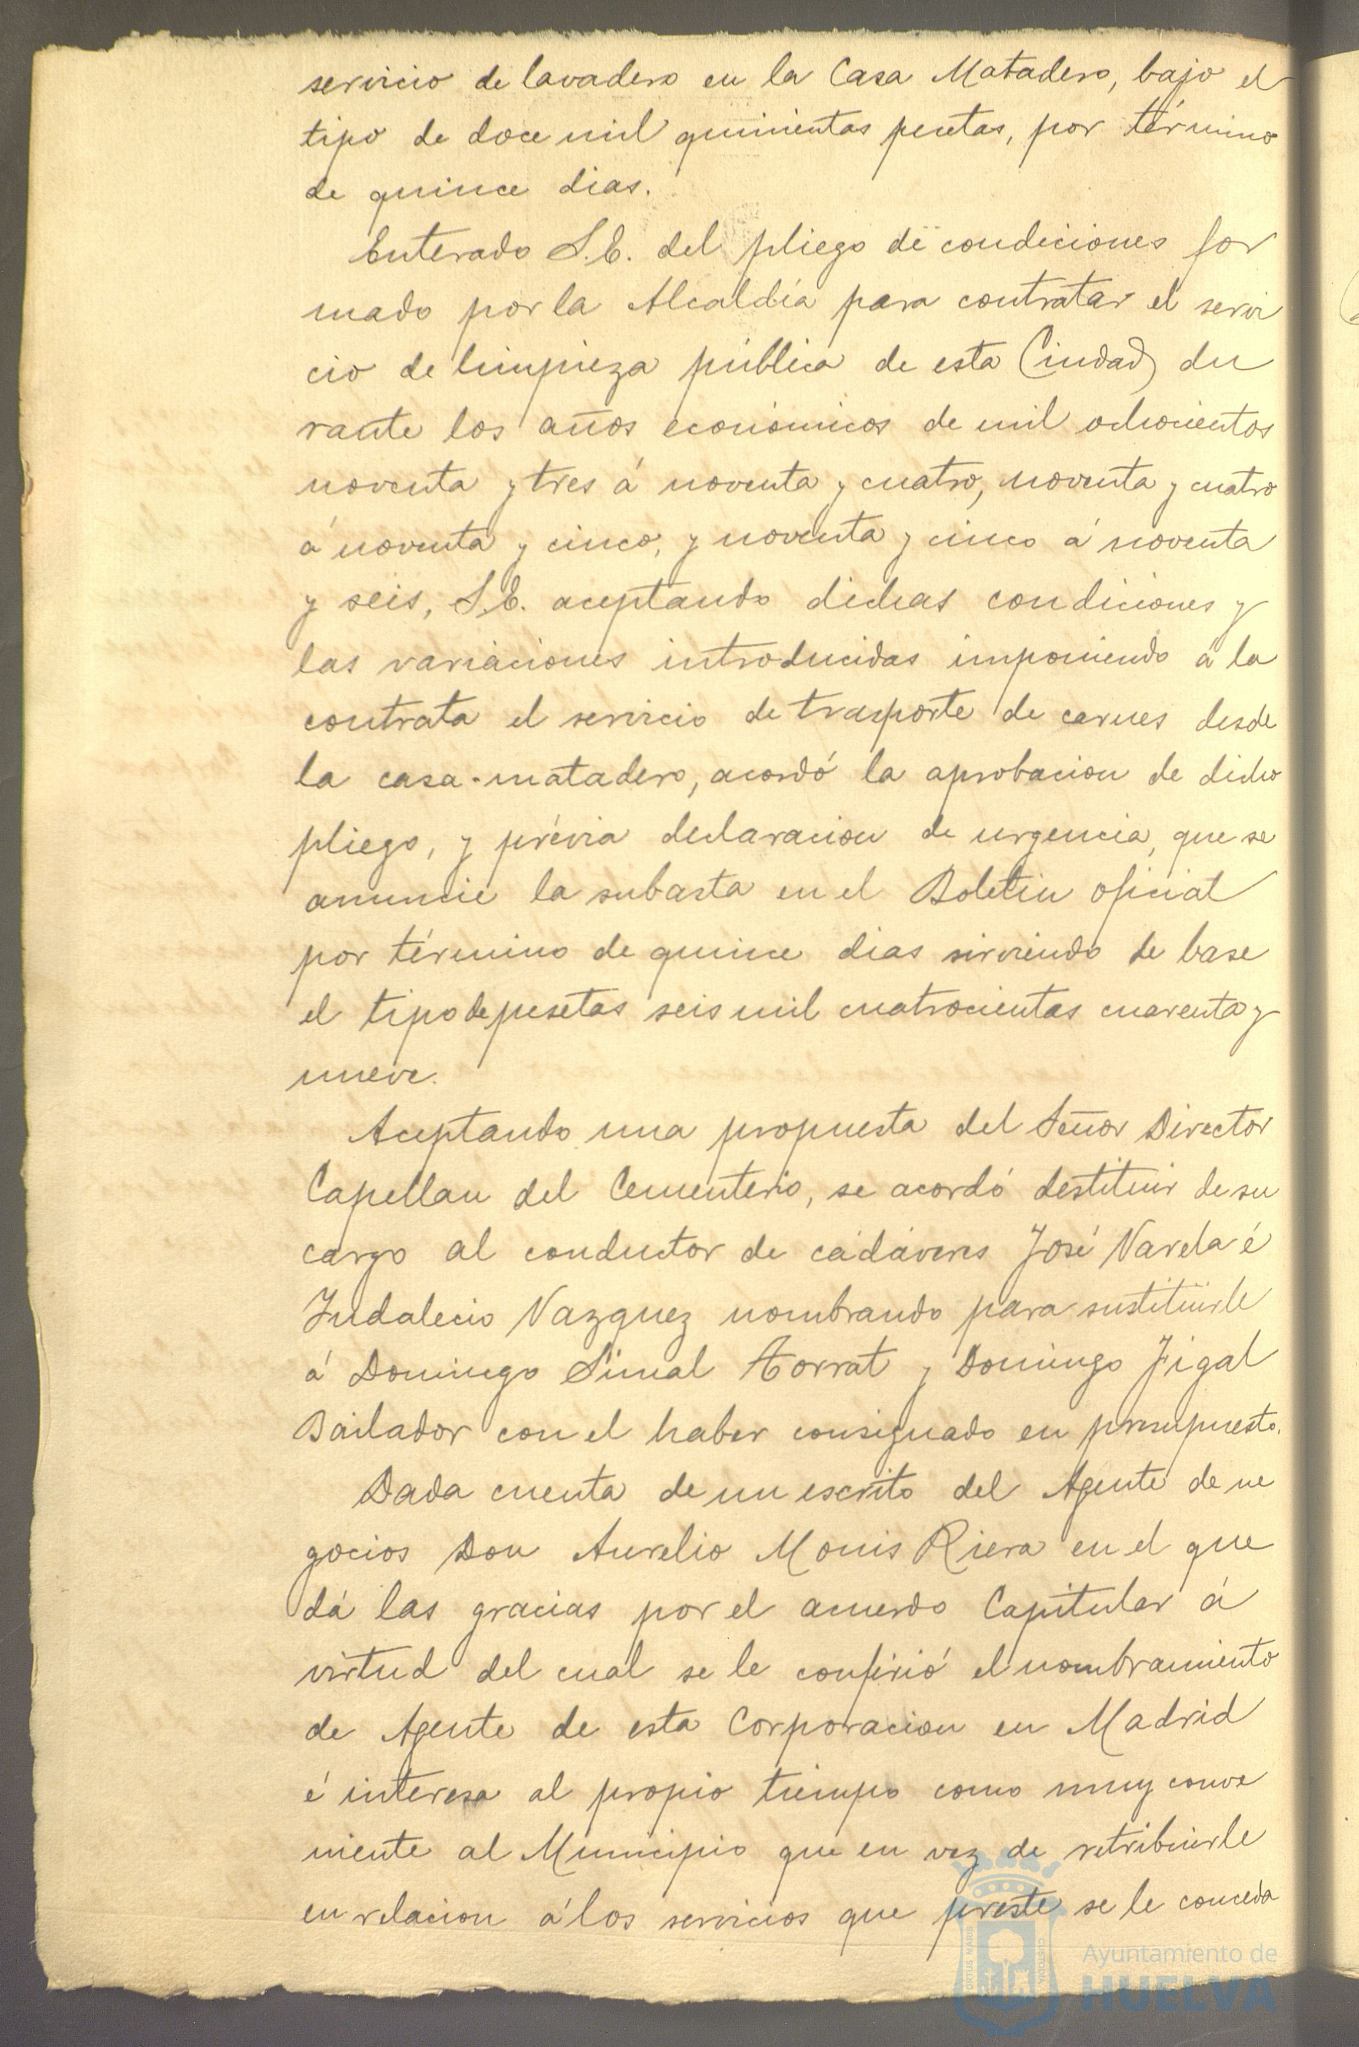 servicio de lavadero en la Casa Matadero, bajo el
tipo de doce mil quinientas pesetas, por término
de quince dias.
Enterado S.E. del pliego de condiciones for
mado por la Alcaldía para contratar el servi
cio de limpieza pública de esta Ciudad du
rante los años económicos de mil ochocientos
noventa y tres á noventa y cuatro, noventa y cuatro
á noventa y cinco, y noventa y cinco á noventa
y seis, S.E. aceptando dichas condiciones y
las variaciones introducidas imponiendo á la
contrata el servicio de trasporte de carnes desde
la casa-matadero, acordó la aprobacion de dicho
pliego, y prévia declaracion de urgencia, que se
anuncie la subasta en el Boletin oficial
por término de quince dias sirviendo de base
el tipo de pesetas seis mil cuatrocientas cuarenta y
nueve.
Aceptando una propuesta del Señor Director
Capellan del Cementerio, se acordó destituir de su
cargo al conductor de cádáveres José Varela é
Indalecio Vazquez nombrando para sustituirle
á Domingo Simal Torrat y Domingo Figal
Bailador con el haber consignado en presupuesto.
Dada cuenta de un escrito del Agente de ne
gocios Don Aurelio Monis Riera en el que
dá las gracias por el acuerdo Capitular á
virtud del cual se le confirió el nombramiento
de Agente de esta Corporacion en Madrid
é interesa al propio tiempo como muy conve
niente al Municipio que en vez de retribuirle
en relacion á los servicios que preste se le conceda
Ayuntamiento de
HUELVA